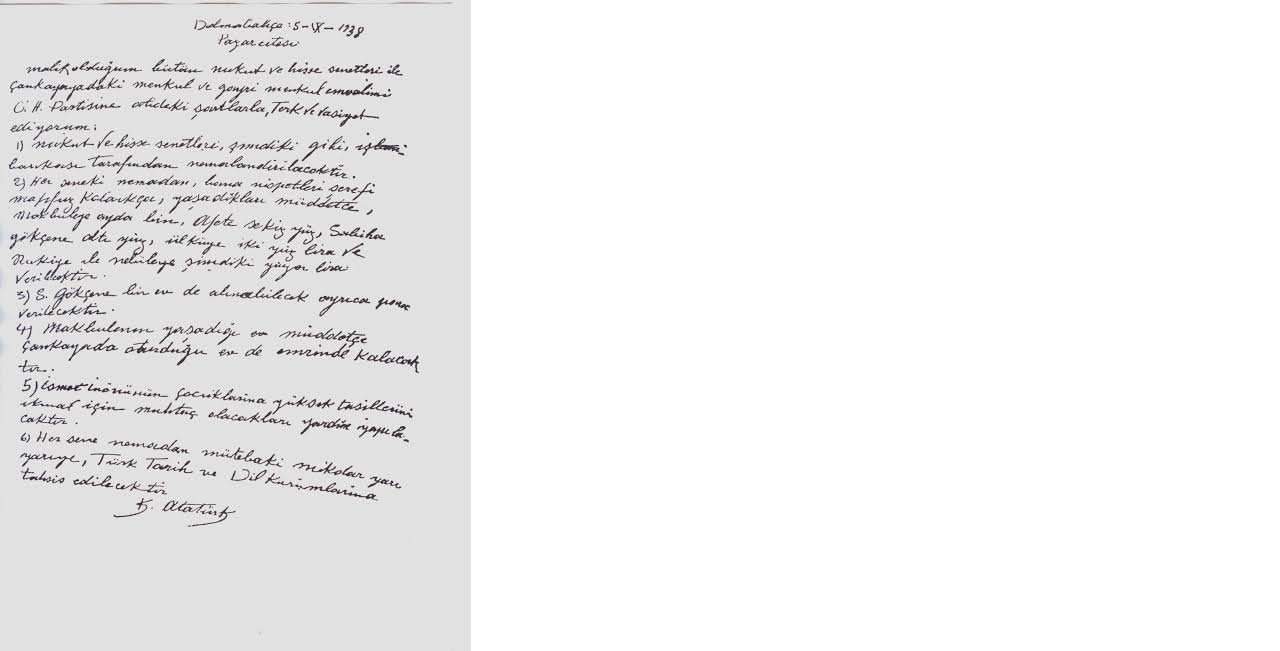 Dolmabahçe: 5-IX-1938
Pazarertesi
malik olduğum bütün nukut ve hisse senetleri ile
Çankayadaki menkul ve gayri menkul emvalimi
C. H. Partisine atideki şartlarla, Terk ve Vasiyet
ediyorum:
1) nukut ve hisse senetleri, şimdiki gibi, iş
bankası tarafından nemalandırılacaktır.
2) Her seneki nemadan, bana nispetleri şerefi
mahfuz kaldıkça, yaşadıkları müddetce,
Makbuleye ayda bin, Afete sekiz yüz, Sabiha
gökçene altı yüz, ülküye iki yüz lira ve
Rukiye ile nebileye şimdiki yüzer lira
verilecektir.
3) S. Gökçene bir ev de alınabilecek ayrıca para
verilecektir.
4) Makbulenin yaşadığı müddetçe
Çankayada oturduğu ev de emrinde kalacak
tır.
5) ismet inönünün çocuklarına yüksek tahsillerini
ikmal için muhtaç olacakları yardım yapıla-
caktır.
6) Her sene nemadan mütebaki mikdar yarı
yarıya, Türk Tarih ve Dil Kurumlarına
tahsis edilecektir
K. Atatürk